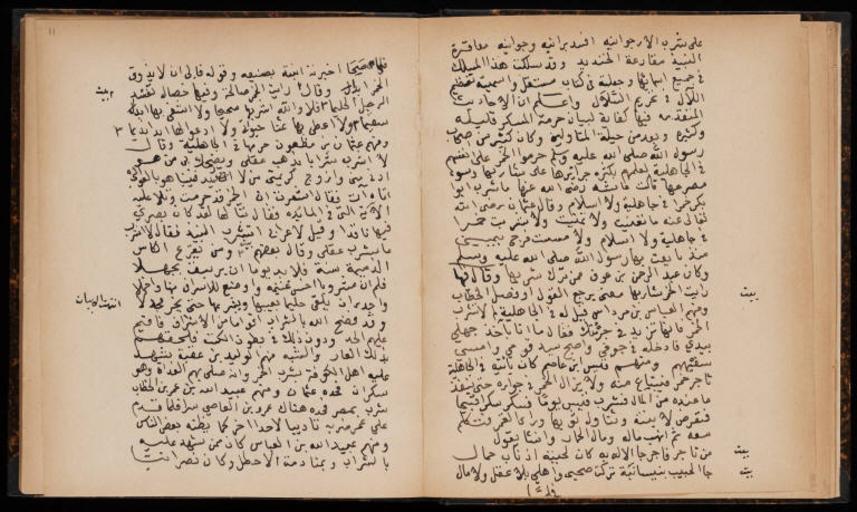 على شرب الارجوانيه
وقد سلكت هذا المسلك
في جميع اسمائها وجعلته في كتاب مستقل واسميته تعظيم
في تحريم واعلم ان الاحاديث
المتقدمه فيها كفاية لبيان حرمة المسكر قليله
وكثيره وكان كثير من صحابة
رسول الله صلى الله عليه وسلم حرموا الخمر على انفسهم
في الجاهلية لعلمهم بكثرة على شاربها وسوء
مصرعها قالت عائشه رضى الله عنها ما شرب ابو
بكر خمرا في جاهلية ولا اسلام وقال عثمان رضى الله
تعالى عنه ما تغنيت ولا تمنيت ولا شربت خمرا
في جاهلية ولا اسلام ولا مسست فرجي بيميني
منذ بايعت بها رسول الله صلى الله عليه وسلم
وكان عبد الرحمن بن عوف ممن ترك شربها وقال فيها
بيت رايت الخمر شاربها معنى يرجع القول او فصل الخطاب
ومنهم العباس بن مرداس قيل له في الجاهلية لم لا تشرب
الخمر فانها تزيد في جرأتك فقال ما انا باخذ جهلي
بيدي فادخله في جوفي واصبح سيد قومي وامسي
سفيههم ومنهم قيس ابن عاصم كان ياتيه في الجاهلية
تاجر خمر فيبتاع منه ولا يزال الخمار في جواره حتى ينفد
ما عنده من المال فشرب قيس يوما فسكر سكرا قبيحا
وتناول ثوبها وراى القمر فتكلم
معه ثم انهب ماله ومال الخمار وانشا يقول
بيت من تاجر فاجر جا الاله به كان لحيته اذناب جمال
بيت جا الخبيث ببيسانية تركت صحبي واهلي بلا عقل ولا مال
فلما
فلما صحا اخبرته ابنته بصنيعه وقوله فالى ان لا يذوق
بيت الخمر ابدا وقال رايت الخمر صالحة وفيها خصال تفسد
الرجل الحليما فلا والله اشربها صحيحا ولا اشفى بها ابدا
سقيما ولا اعطى بها ثمنا حياتي ولا ادعو لها ابدا نديما
ومنهم عثمان بن مظعون حرمها في الجاهلية وقال
لا اشرب شرابا يذهب عقلي ويضحك بي من هو
ادنى مني وازوج كريمتي من لا اريد فبينما هو بالعوالي
اتاه آت فقال اشعرت ان الخمر قد حرمت وتلا عليه
الآية التي في المائده فقال تبا لها لقد كان بصري
فيها نافذا وقيل لاعرابي اتشرب النبيذ فقال لا اشرب
ما يشرب عقلي وقال بعضهم ومن يقرع الكاس
الذميمة سنه فلا بد يوما ان يجهلا
فلم ار مشروبا اخس غنيمة واوضع للاشراف منها واخملا
انتهت الابيات واجدر ان تلقى حليما بغيها ويشربها حتى يخر مجدلا
وقد فضح الله بالشراب اقواما من الاشراف فاقيم
عليهم الحد ودون ذلك في بطون الكتب
بذلك العار والسبه منهم الوليد بن عقبة شهد
عليه اهل الكوفة بشرب الخمر وانه صلى بهم الغداة وهو
سكران فحده عثمان ومنهم عبيد الله بن عمر بن الخطاب
شرب بمصر فحده هناك عمرو بن العاصي سرا فلما قدم
على عمر ضربه تاديبا لا حدا اخر كما يظنه بعض الناس
ومنهم عبيد الله بن العباس كان ممن شهد عليه
بالشراب وبمنادمة الاخطل وكان نصرانيا